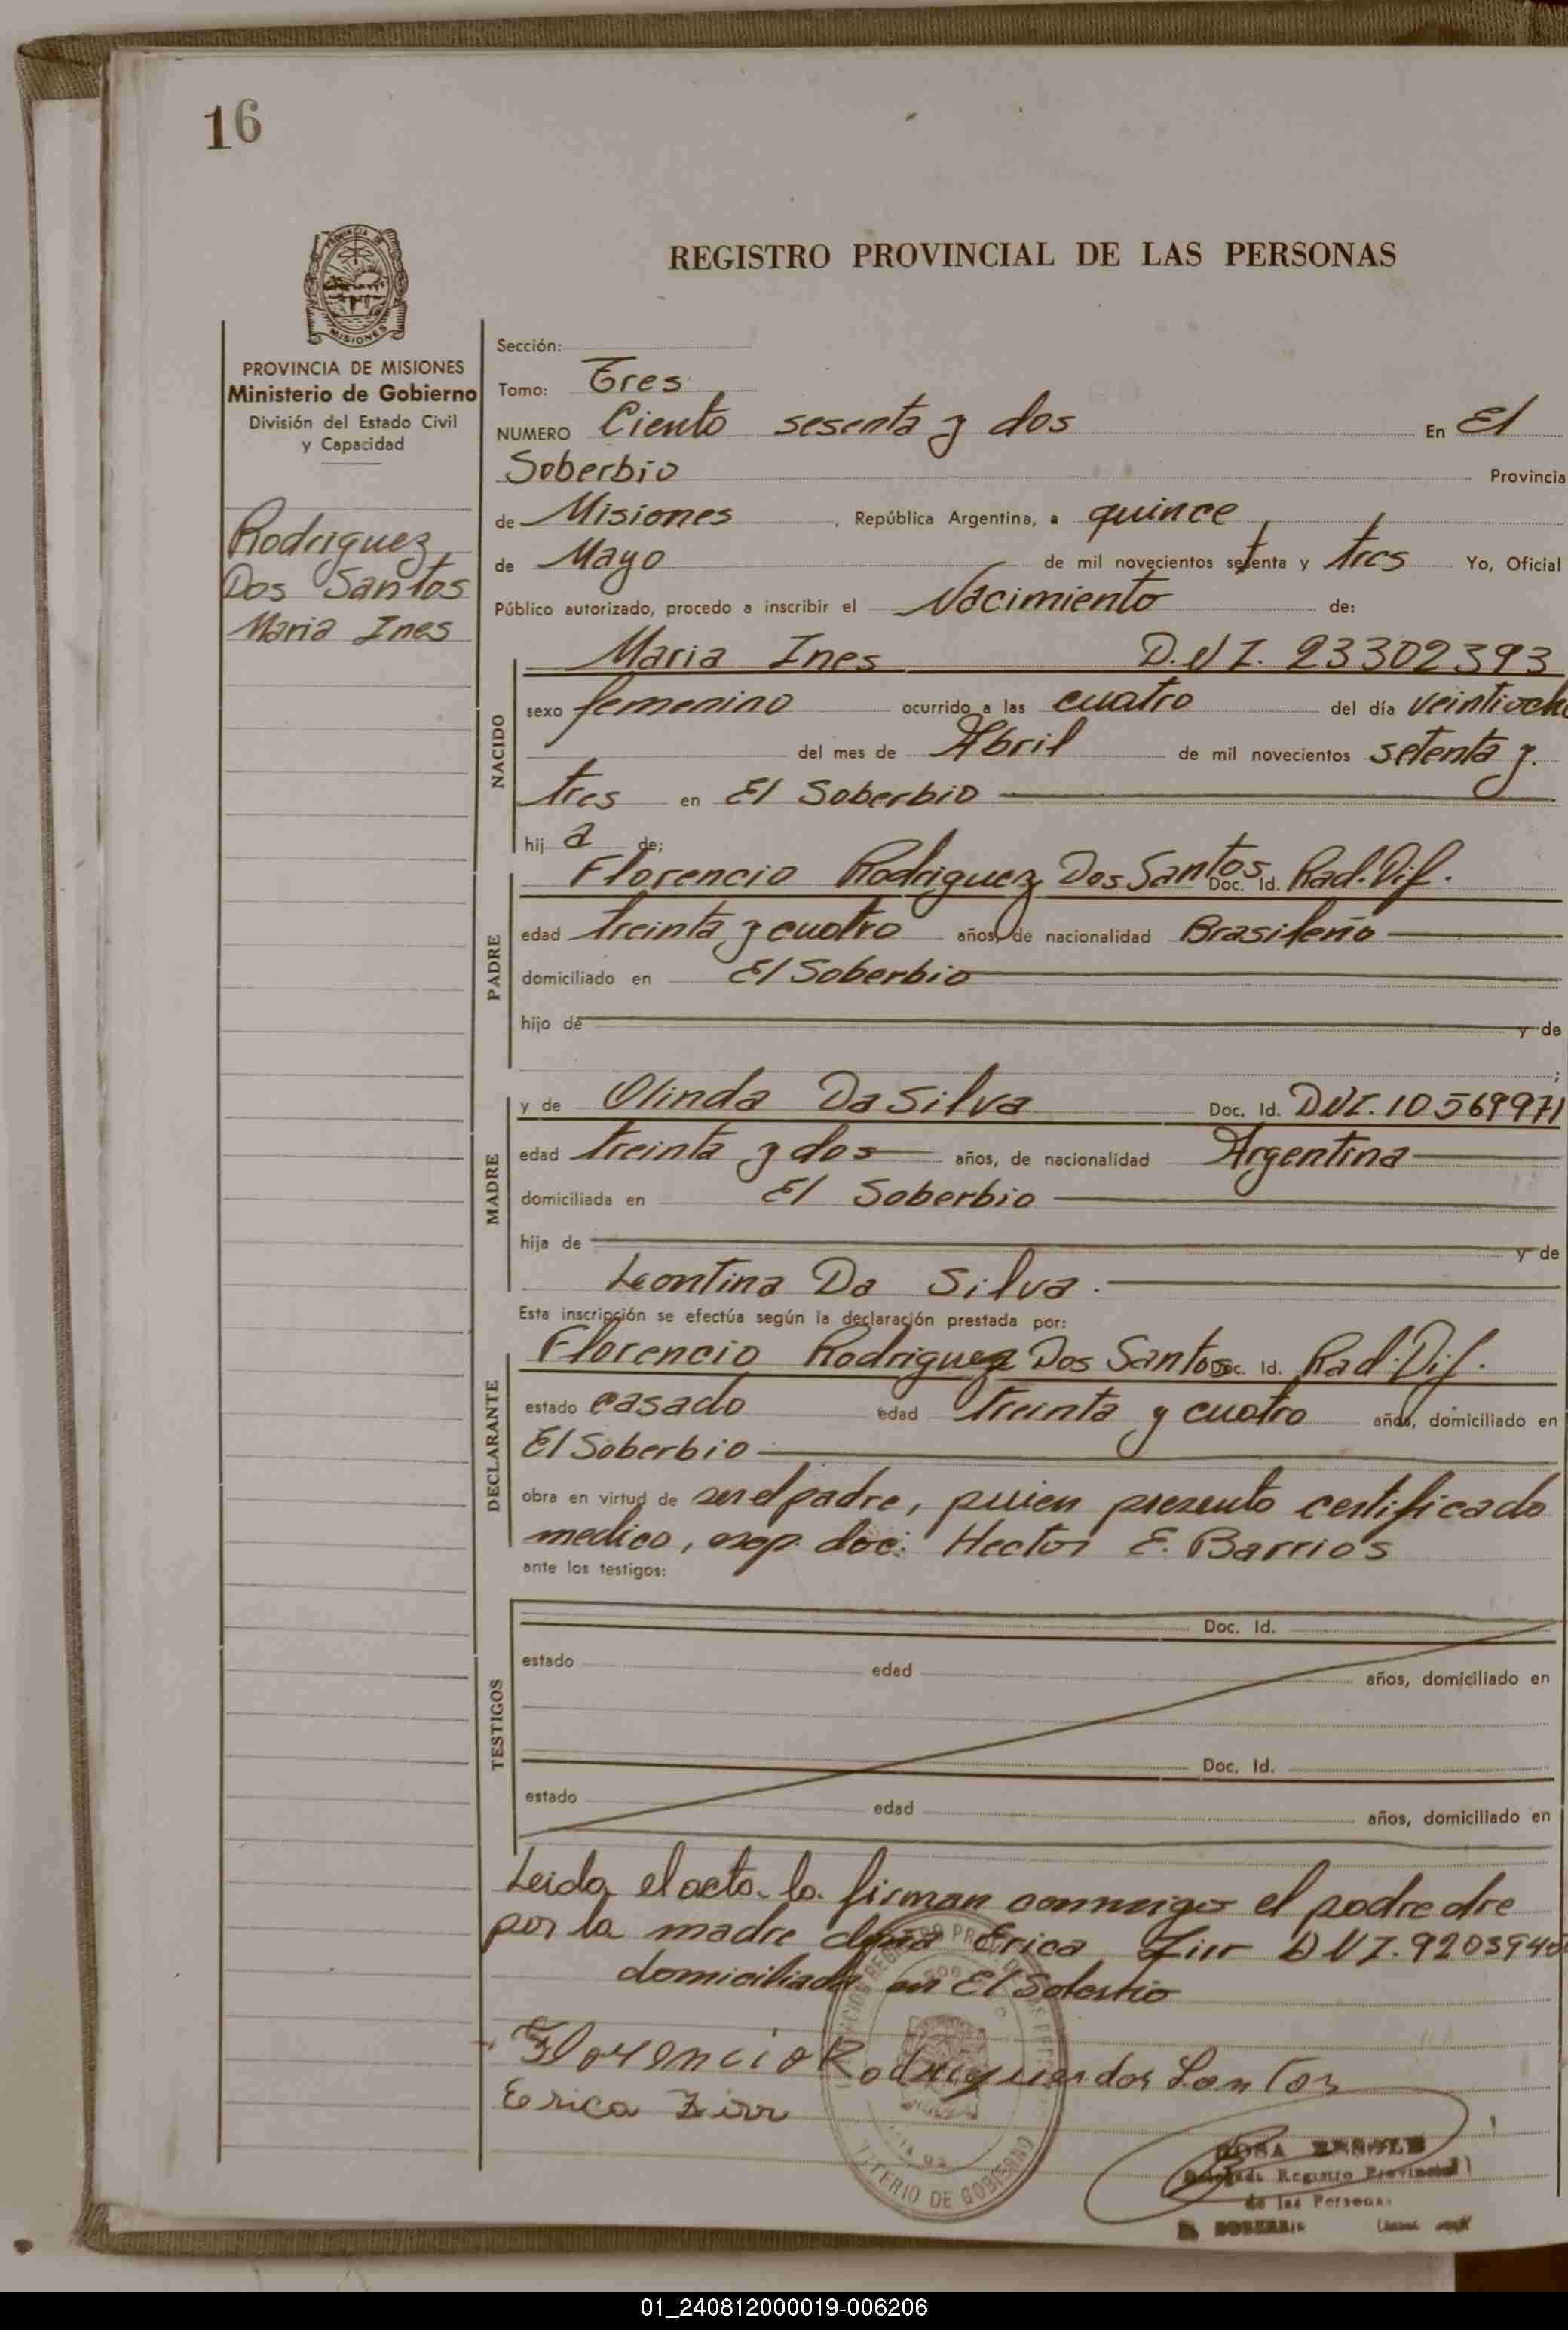 16
PROVINCIA DE MISIONES
Ministerio de Gobierno
División del Estado Civil
y Capacidad
Rodriguez
Dos Santos
Maria Ines
REGISTRO PROVINCIAL DE LAS PERSONAS
Sección:
Tomo: Tres
NUMERO Ciento sesenta y dos En El
Soberbio Provincia
de Misiones, República Argentina, a quince
de Mayo de mil novecientos setenta y tres Yo, Oficial
Público autorizado, procedo a inscribir el Nacimiento de:
NACIDO
Maria Ines D.N I. 23302393
sexo femenino ocurrido a las cuatro del día veintiocho
del mes de Abril de mil novecientos setenta y.
tres en El Soberbio
hij a de;
PADRE
Florencio Rodriguez Dos Santos Doc. Id. Rad. Dif.
edad treinta y cuatro años, de nacionalidad Brasileño
domiciliado en El Soberbio
hijo de y de
;
MADRE
y de Olinda Da Silva Doc. Id. DNI. 10569971
edad treinta y dos años, de nacionalidad Argentina
domiciliada en El Soberbio
hija de y de
Leontina Da Silva.
Esta inscripción se efectúa según la declaración prestada por:
DECLARANTE
Florencio Rodriguez Dos Santos Doc. Id. Rad. Dif.
estado casado edad treinta y cuatro años, domiciliado en
El Soberbio
obra en virtud de ser el padre, quien presento certificado
medico, exp. doc: Hector E. Barrios
ante los testigos:
TESTIGOS
Doc. Id.
estado edad años, domiciliado en
Doc. Id.
estado edad años, domiciliado en
Leida el acta la firman conmigo el padre
por la madre doña Erica Zirr DNI.
domiciliada en El Soberbio
Florencio Rodriguez dos Santos
Erica Zirr
MINISTERIO DE GOBIERNO
ROSA
Delegada Registro Provincial
de las Personas
EL SOBERBIO
01_240812000019-006206